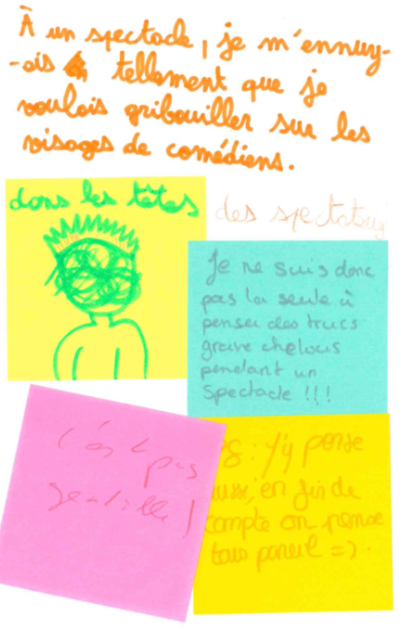 À un spectacle, je m'ennuy-
-ais tellement que je
voulais gribouiller sur les
visages de comédiens.
dans les têtes
des spectateurs
Je ne suis donc
pas la seule à
penser des trucs
grave chelous
pendant un
Spectacle !!!
c'est pas
gentille !
PS : j'y pense
aussi, en fin de
compte on pense
tous pareil =).